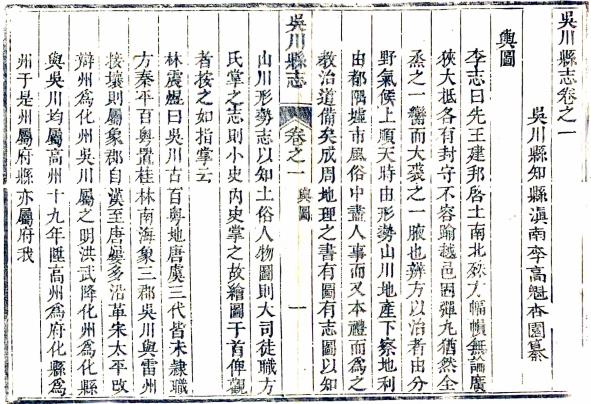 吳川縣志卷之一
吳川縣知縣滇南李高魁杏園纂
輿圖
李志曰先王建邦啓土南北殊方幅幀無論廣
狹大抵各有封守不容踰越邑固彈丸猶然全
烝之一臠而大裘之一腋也辨方以治者由分
野氣候上順天時由形勢山川地產下察地利
由都隅墟市風俗中盡人事而又本禮而為之
教治道備矣成周地理之書有圖有志圖以知
吳川縣志
卷之一
輿圖
一
山川形勢志以知土俗人物圖則大司徒職方
氏掌之志則小史內史掌之故繪圖于首俾觀
者按之如指掌云
林震煜曰吳川古百粵地唐虞三代皆未隸職
方秦平百粵置桂林南海象三郡吳川與雷州
接壤則屬象郡自漢至唐屢多沿革宋太平改
辯州為化州吳川屬之明洪武降化州為化縣
與吳川均屬高州十九年陞高州為府化縣為
州于是州屬府縣亦屬府我